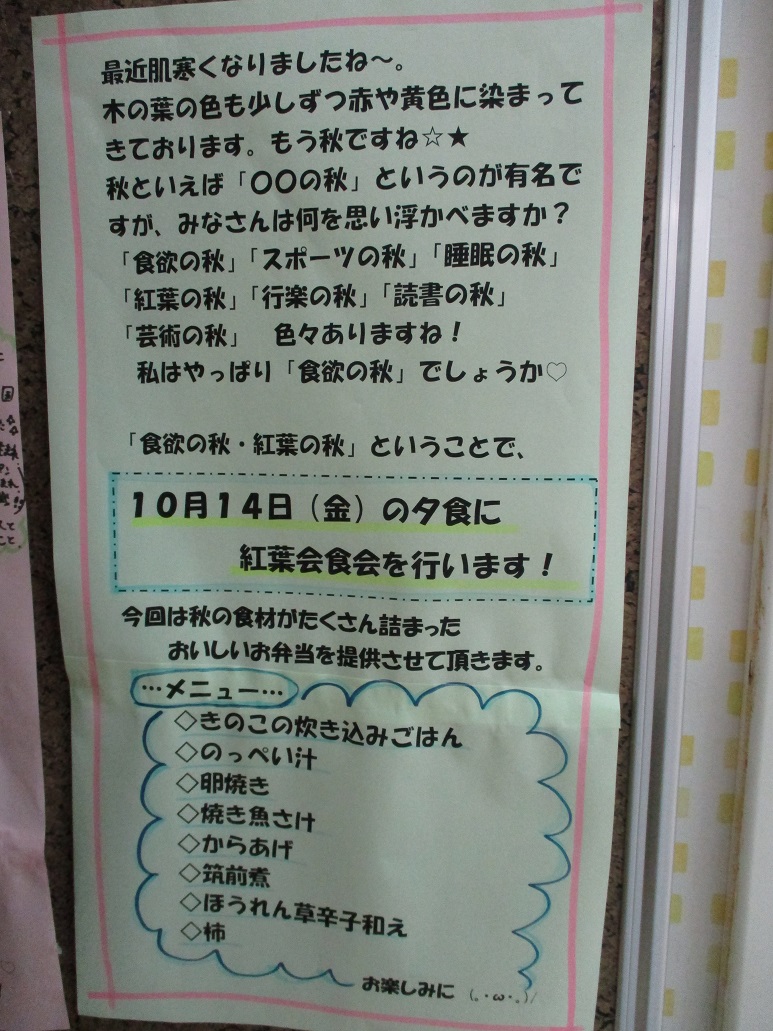 最近肌寒くなりましたね～。
木の葉の色も少しずつ赤や黄色に染まって
きております。もう秋ですね☆★
秋といえば「〇〇の秋」というのが有名で
すが、みなさんは何を思い浮かべますか？
「食欲の秋」「スポーツの秋」「睡眠の秋」
「紅葉の秋」「行楽の秋」「読書の秋」
「芸術の秋」　色々ありますね！
私はやっぱり「食欲の秋」でしょうか♡
「食欲の秋・紅葉の秋」ということで、
１０月１４日（金）の夕食に
紅葉会食会を行います！
今回は秋の食材がたくさん詰まった
おいしいお弁当を提供させて頂きます。
…メニュー…
◇きのこの炊き込みごはん
◇のっぺい汁
◇卵焼き
◇焼き魚さけ
◇からあげ
◇筑前煮
◇ほうれん草辛子和え
◇柿
お楽しみに (｡･ω･｡)/